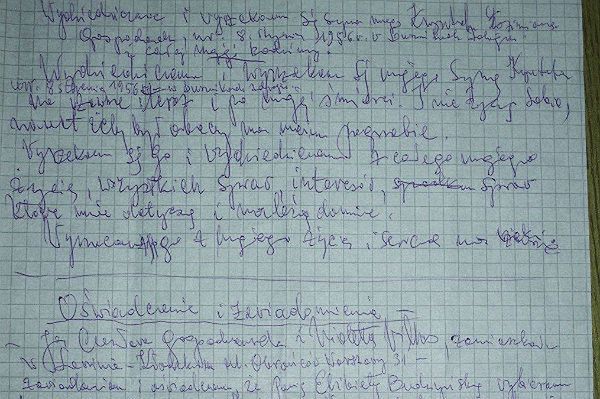 Wydziedziczenie i wyrzekam się syna mego Krzysztofa
Gospodarek, ur. 8. 1956 r. w
z całej mojej rodziny.
Wydziedziczam i wyrzekam się mojego Syna Krzysztofa
ur. 8 1956 r. w
teraz i po mojej śmierci. I nie życzę sobie,
nawet, żeby był obecny na moim pogrzebie.
Wyrzekam się go i wydziedziczam z całego mojego
życia, wszystkich spraw, interesów, spraw
które mnie dotyczą i należą do mnie.
Wyrzucam go z mojego życia i serca na
Oświadczenie i zawiadomienie –
Ja, Czesława Gospodarek i Violetta Villas, zamieszkała
w Lewinie-Kłodzkim ul. Obrońców Warszawy 31 –
zawiadamiam i oświadczam, że Panią Elżbietę Budzyńską wybieram